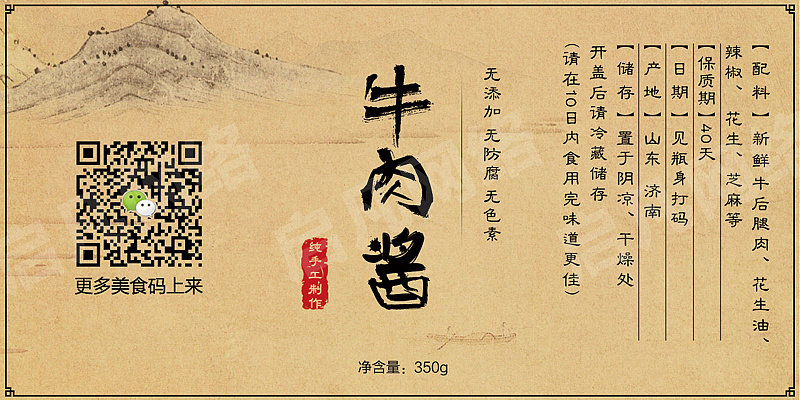 【配料】新鲜牛后腿肉、花生油、
辣椒、花生、芝麻等
【保质期】40天
【日期】见瓶身打码
【产地】山东 济南
【储存】置于阴凉、干燥处
开盖后请冷藏储存
(请在10日内食用完味道更佳)
无添加 无防腐 无色素
牛肉酱
纯手工制作
净含量：350g
更多美食码上来